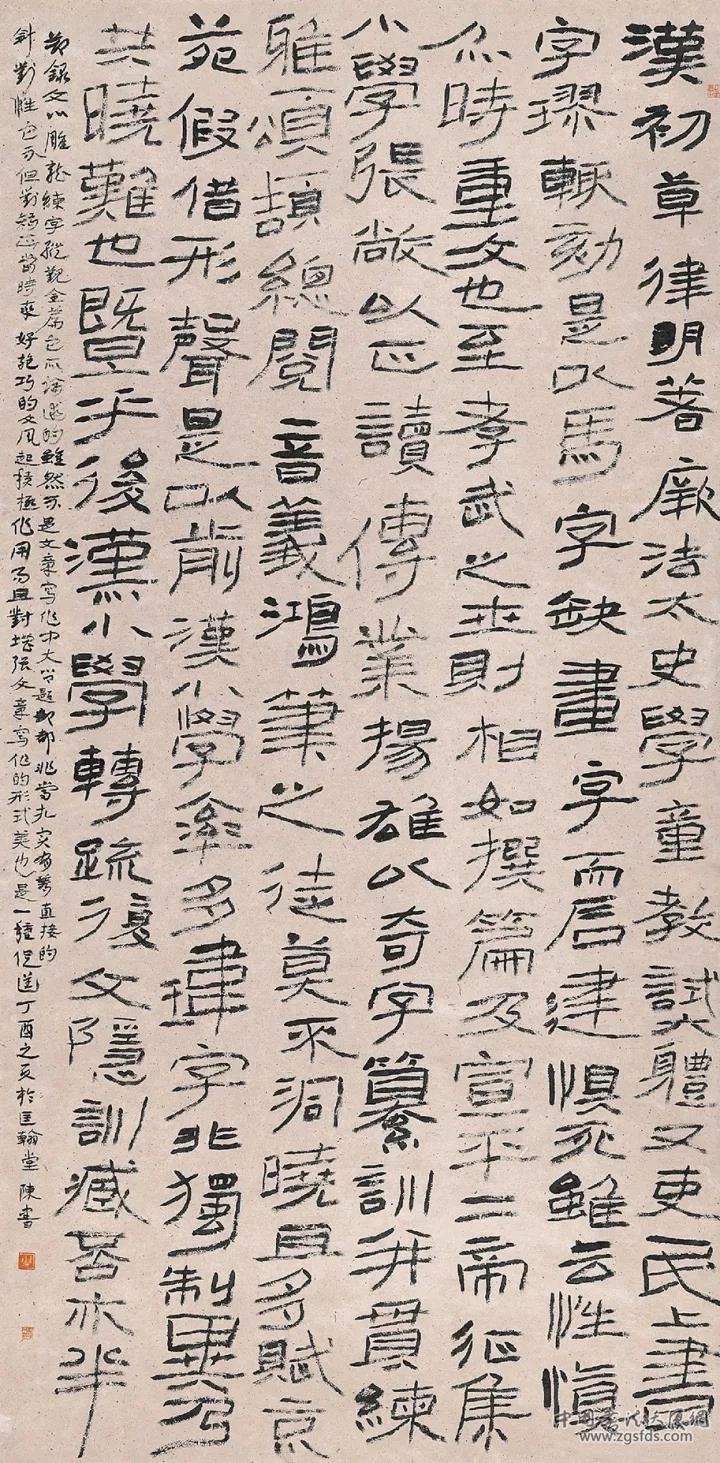 漢初草律明著厥法太史學童教試體又吏民上書
字璆輒劾是以馬字缺畫字而石建惧死雖云性慎
亦時重文也至孝武之世則相如撰篇及宣平二帝征集
小學張敞以正讀傳業揚雄以奇字纂訓并貫練
雅頌頡總閱音義鴻筆之徒莫不洞曉且多賦京
苑假借形聲是以前漢小學率多瑋字非獨制異乃
共曉難也暨乎後漢小學轉疏復文隱訓臧否亦半
節錄文心雕龍練字縱觀全篇它所論述的雖然不是文章寫作中大問題卻都非常扎實有著直接的
針對性它不但對矯正當時愛好詭巧的文風起積極作用而且對增強文章寫作的形式美也是一種促進丁酉之夏於匡翰堂陳書
www.zgsfds.com